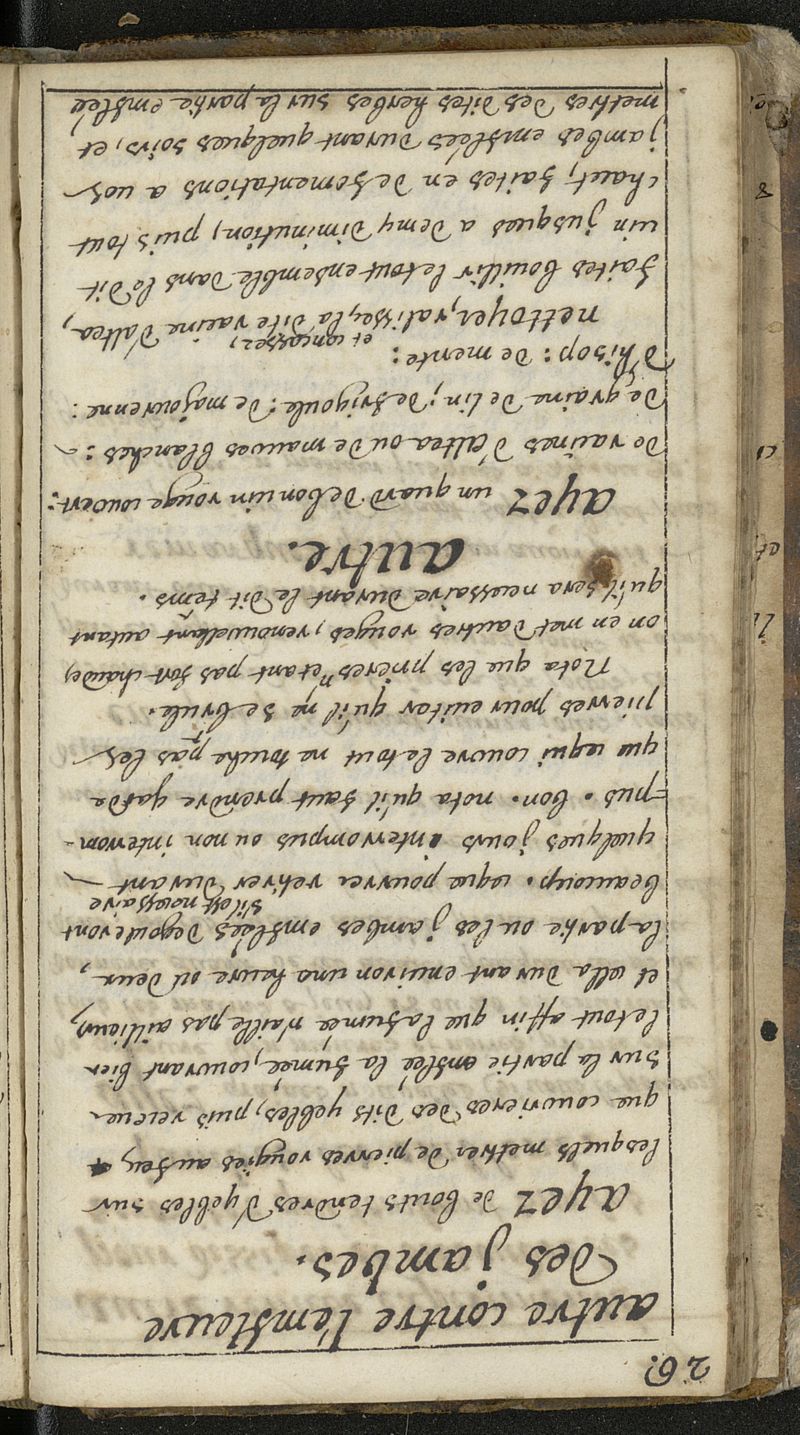 26.
autre contre l'emfleure
des jambes.
ayez de bouts tendres d'yebles sur
lesquels mettrez de pierres rougies au feu,
que couvrires des dits yebles, puis receue
sur la partie enflée la fumée, couvrant bien
le tout affin que la fumée n'aille pas ailleurs,
et cella durant environ une heure ou deux,
la partie ou les jambes emflées degouteront
s'il est necessaire
beaucoup. ce que pourrez reitrer durant
quelques jours interrompus ou non interrom-
=pus. bon. nota qu'il faut prendre garde
que ce qui couvre le tout ne touche pas les
pierres pour euiter qu'il ne se brule.
Nota que les pierres n'etant pas fort chaudes,
on en met d'autres rouges, renouvellant autant
qu'il sera necessaire durant le dit tems.
autre.
ayez un quard de bon uin rouge couvert:
de racines d'altea ou de mauves blanches:
de graine de lin; de frigoule: de majourenne:
d'hisop: de mente:
et concasser,
nettoyer, ratisser, la dite racine d'altea,
faites bouillir le tout ensemble dans le dit
uin jusques a demy diminution, puis tout
chaut, faites en de fomentations a uos
jambes emflées durant quelques soirs, et
mettres des dites herbes sur la partie emflée